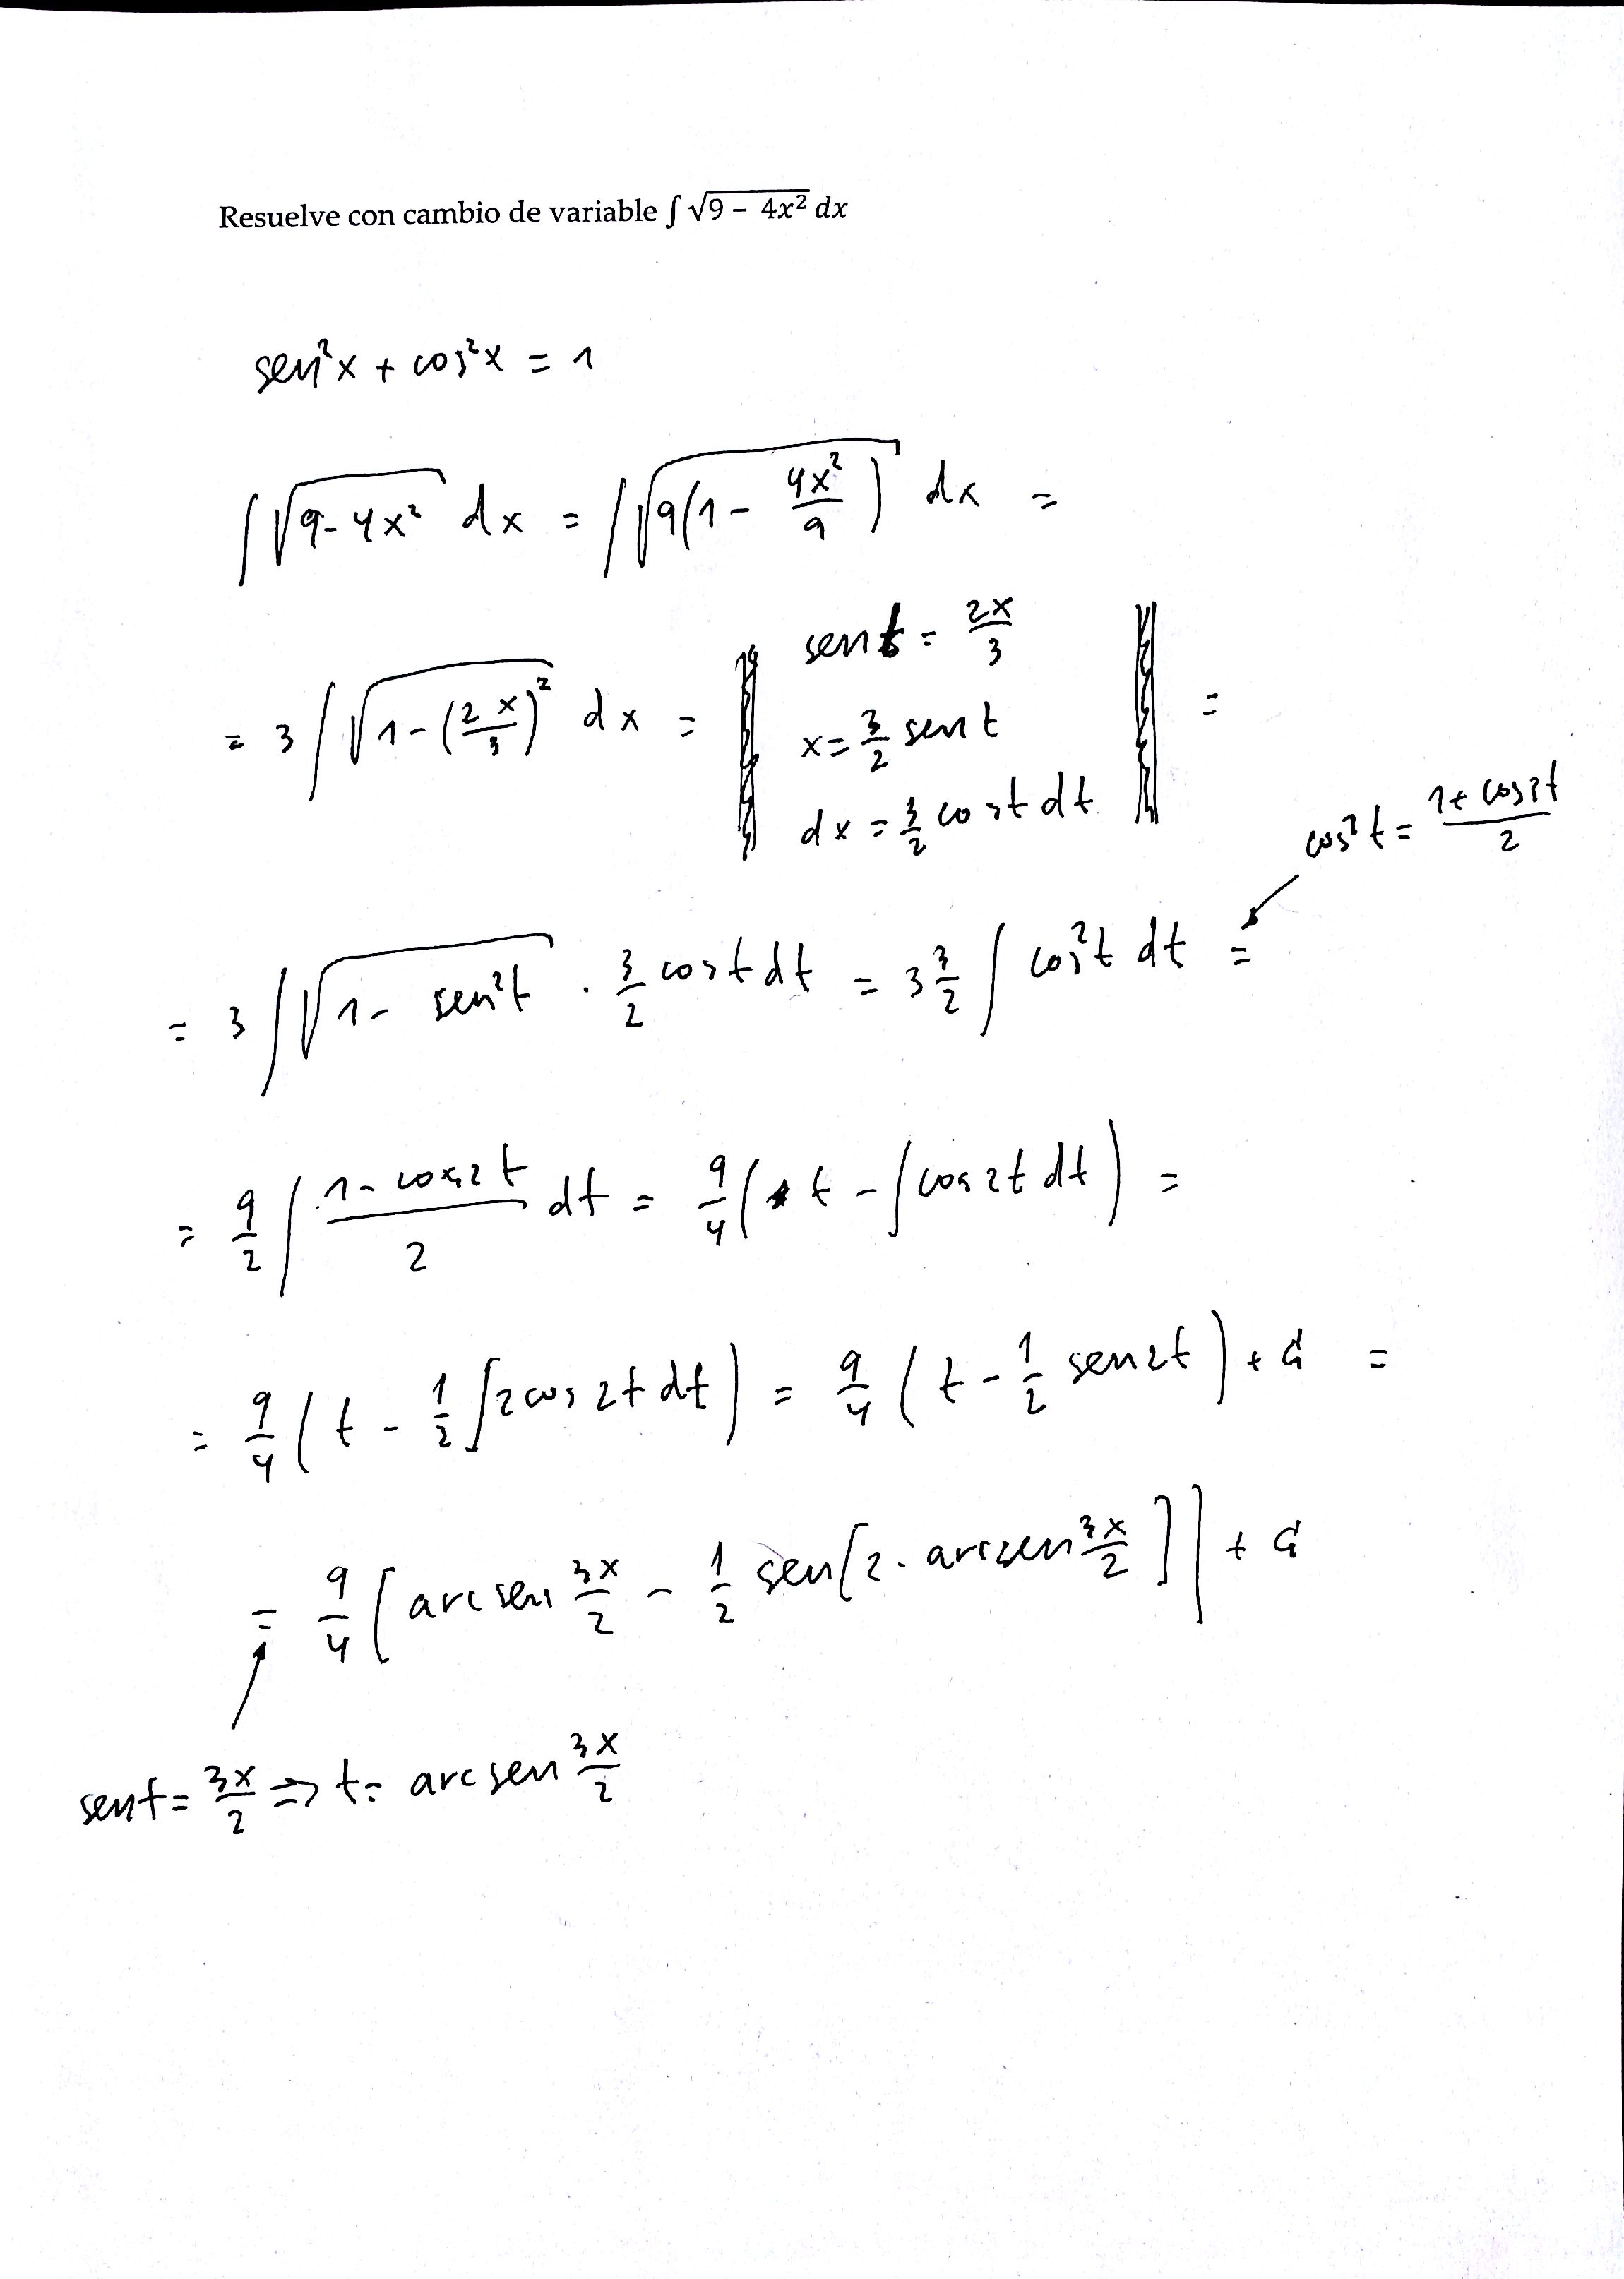 Resuelve con cambio de variable ∫ √(9 − 4x²) dx
sen²x + cos²x = 1
∫ √(9-4x²) dx = ∫ √(9(1 - 4x²/9)) dx =
= 3 ∫ √(1-(2x/3)²) dx = | sen t = 2x/3
x = 3/2 sen t
dx = 3/2 cos t dt | =
cos²t = (1+cos2t)/2
= 3 ∫ √(1- sen²t) · 3/2 cos t dt = 3 3/2 ∫ cos²t dt =
= 9/2 ∫ (1- cos2t)/2 dt = 9/4 (t - ∫cos2t dt) =
= 9/4 (t - 1/2 ∫2cos2t dt) = 9/4 (t - 1/2 sen2t) + C =
= 9/4 [arcsen 3x/2 - 1/2 sen[2·arcsen 3x/2]] + C
sen t = 3x/2 => t = arcsen 3x/2